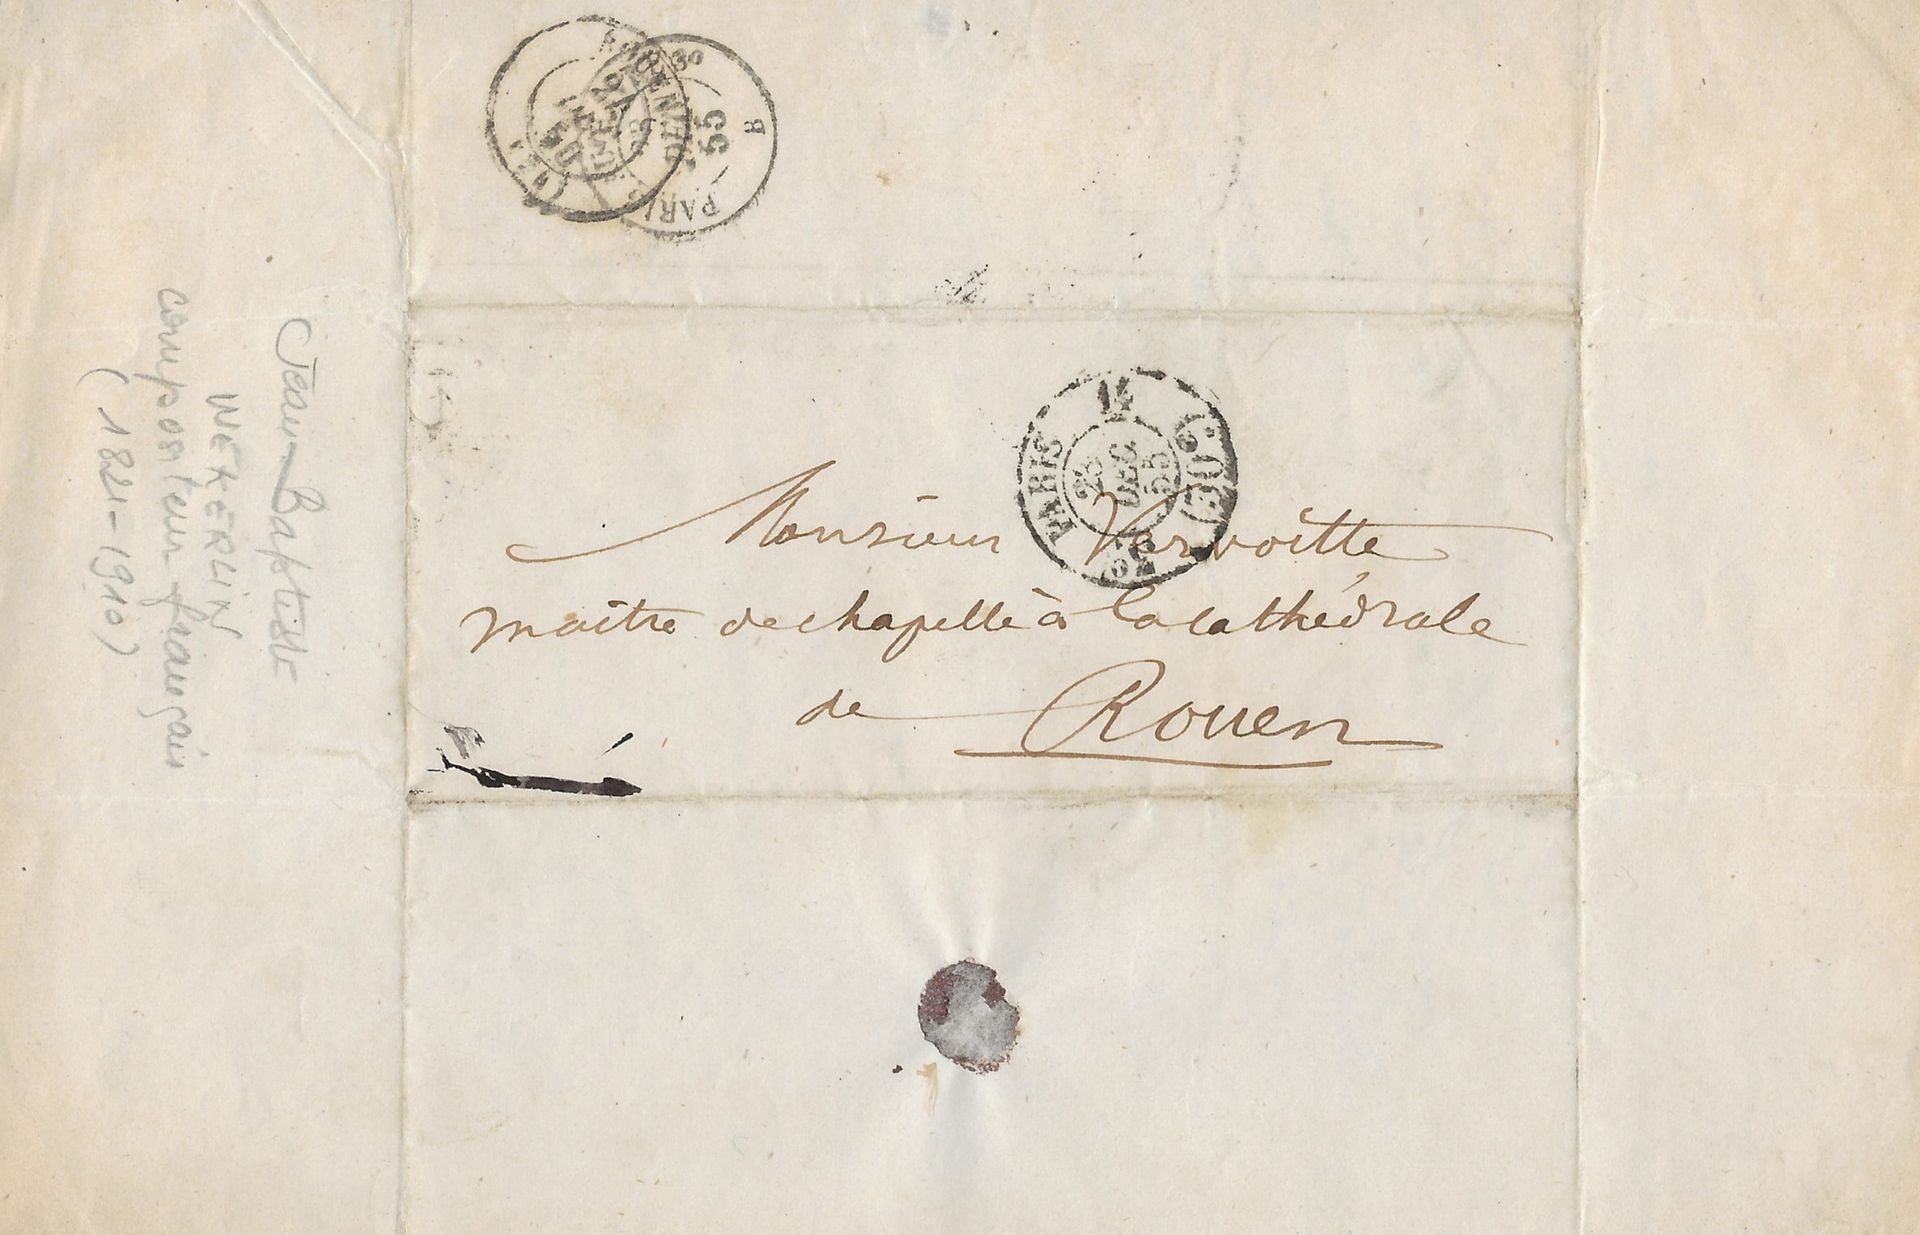 PARIS
55
B
Jean-Baptiste
WEKERLIN
compositeur français
(1821-1910)
PARIS
(60)
DEC.
55
Monsieur Vervoitte
maître de chapelle à la cathédrale
de Rouen